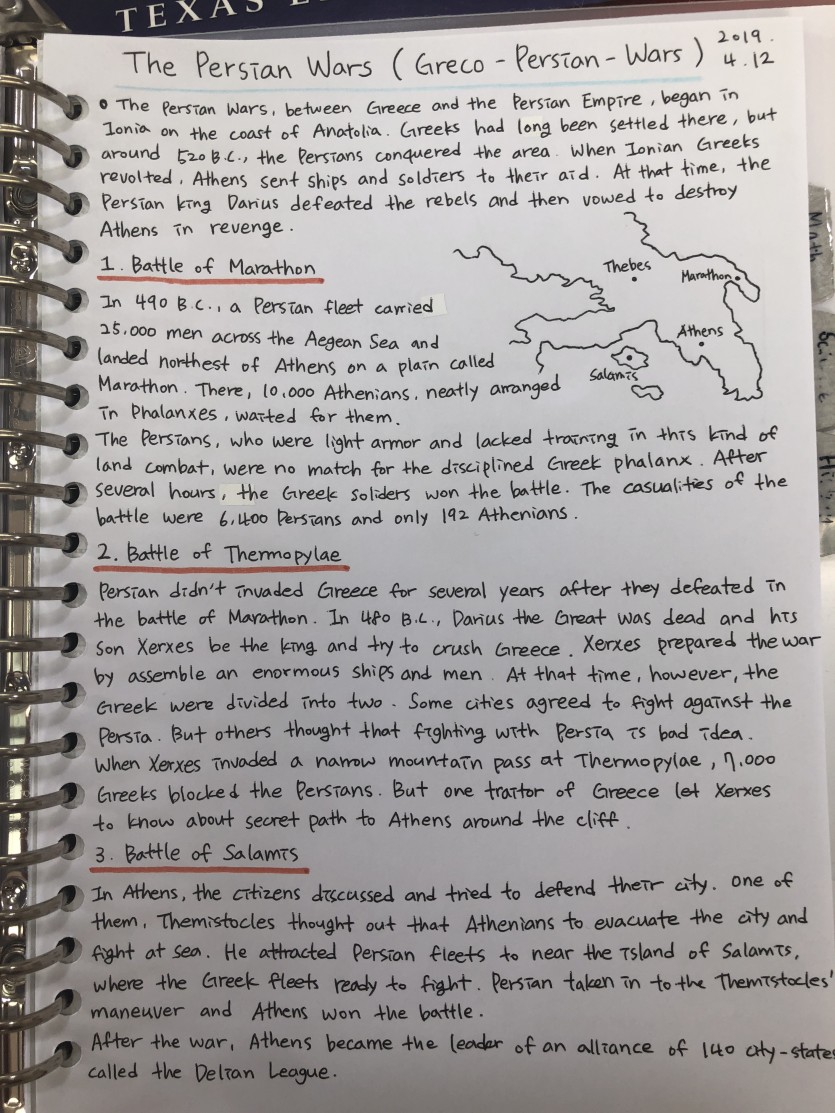 TEXAS
The Persian Wars ( Greco - Persian - Wars )
2019.
4.12
• The Persian Wars, between Greece and the Persian Empire, began in
Ionia on the coast of Anatolia. Greeks had long been settled there, but
around 520 B.C., the Persians conquered the area. When Ionian Greeks
revolted, Athens sent ships and soldiers to their aid. At that time, the
Persian king Darius defeated the rebels and then vowed to destroy
Athens in revenge.
1. Battle of Marathon
Thebes
Marathon
Athens
Salamis
In 490 B.C., a Persian fleet carried
25,000 men across the Aegean Sea and
landed northest of Athens on a plain called
Marathon. There, 10,000 Athenians, neatly arranged
in Phalanxes, waited for them.
The Persians, who were light armor and lacked training in this kind of
land combat, were no match for the disciplined Greek phalanx. After
several hours, the Greek soliders won the battle. The casualities of the
battle were 6,400 Persians and only 192 Athenians.
2. Battle of Thermopylae
Persian didn't invaded Greece for several years after they defeated in
the battle of Marathon. In 480 B.C., Darius the Great was dead and his
son Xerxes be the king and try to crush Greece. Xerxes prepared the war
by assemble an enormous ships and men. At that time, however, the
Greek were divided into two. Some cities agreed to fight against the
Persia. But others thought that fighting with Persia is bad idea.
When Xerxes invaded a narrow mountain pass at Thermopylae, 7,000
Greeks blocked the Persians. But one traitor of Greece let Xerxes
to know about secret path to Athens around the cliff.
3. Battle of Salamis
In Athens, the citizens discussed and tried to defend their city. One of
them, Themistocles thought out that Athenians to evacuate the city and
fight at sea. He attracted Persian fleets to near the island of Salamis,
where the Greek fleets ready to fight. Persian taken in to the Themistocles'
maneuver and Athens won the battle.
After the war, Athens became the leader of an alliance of 140 city-states
called the Delian League.
Math